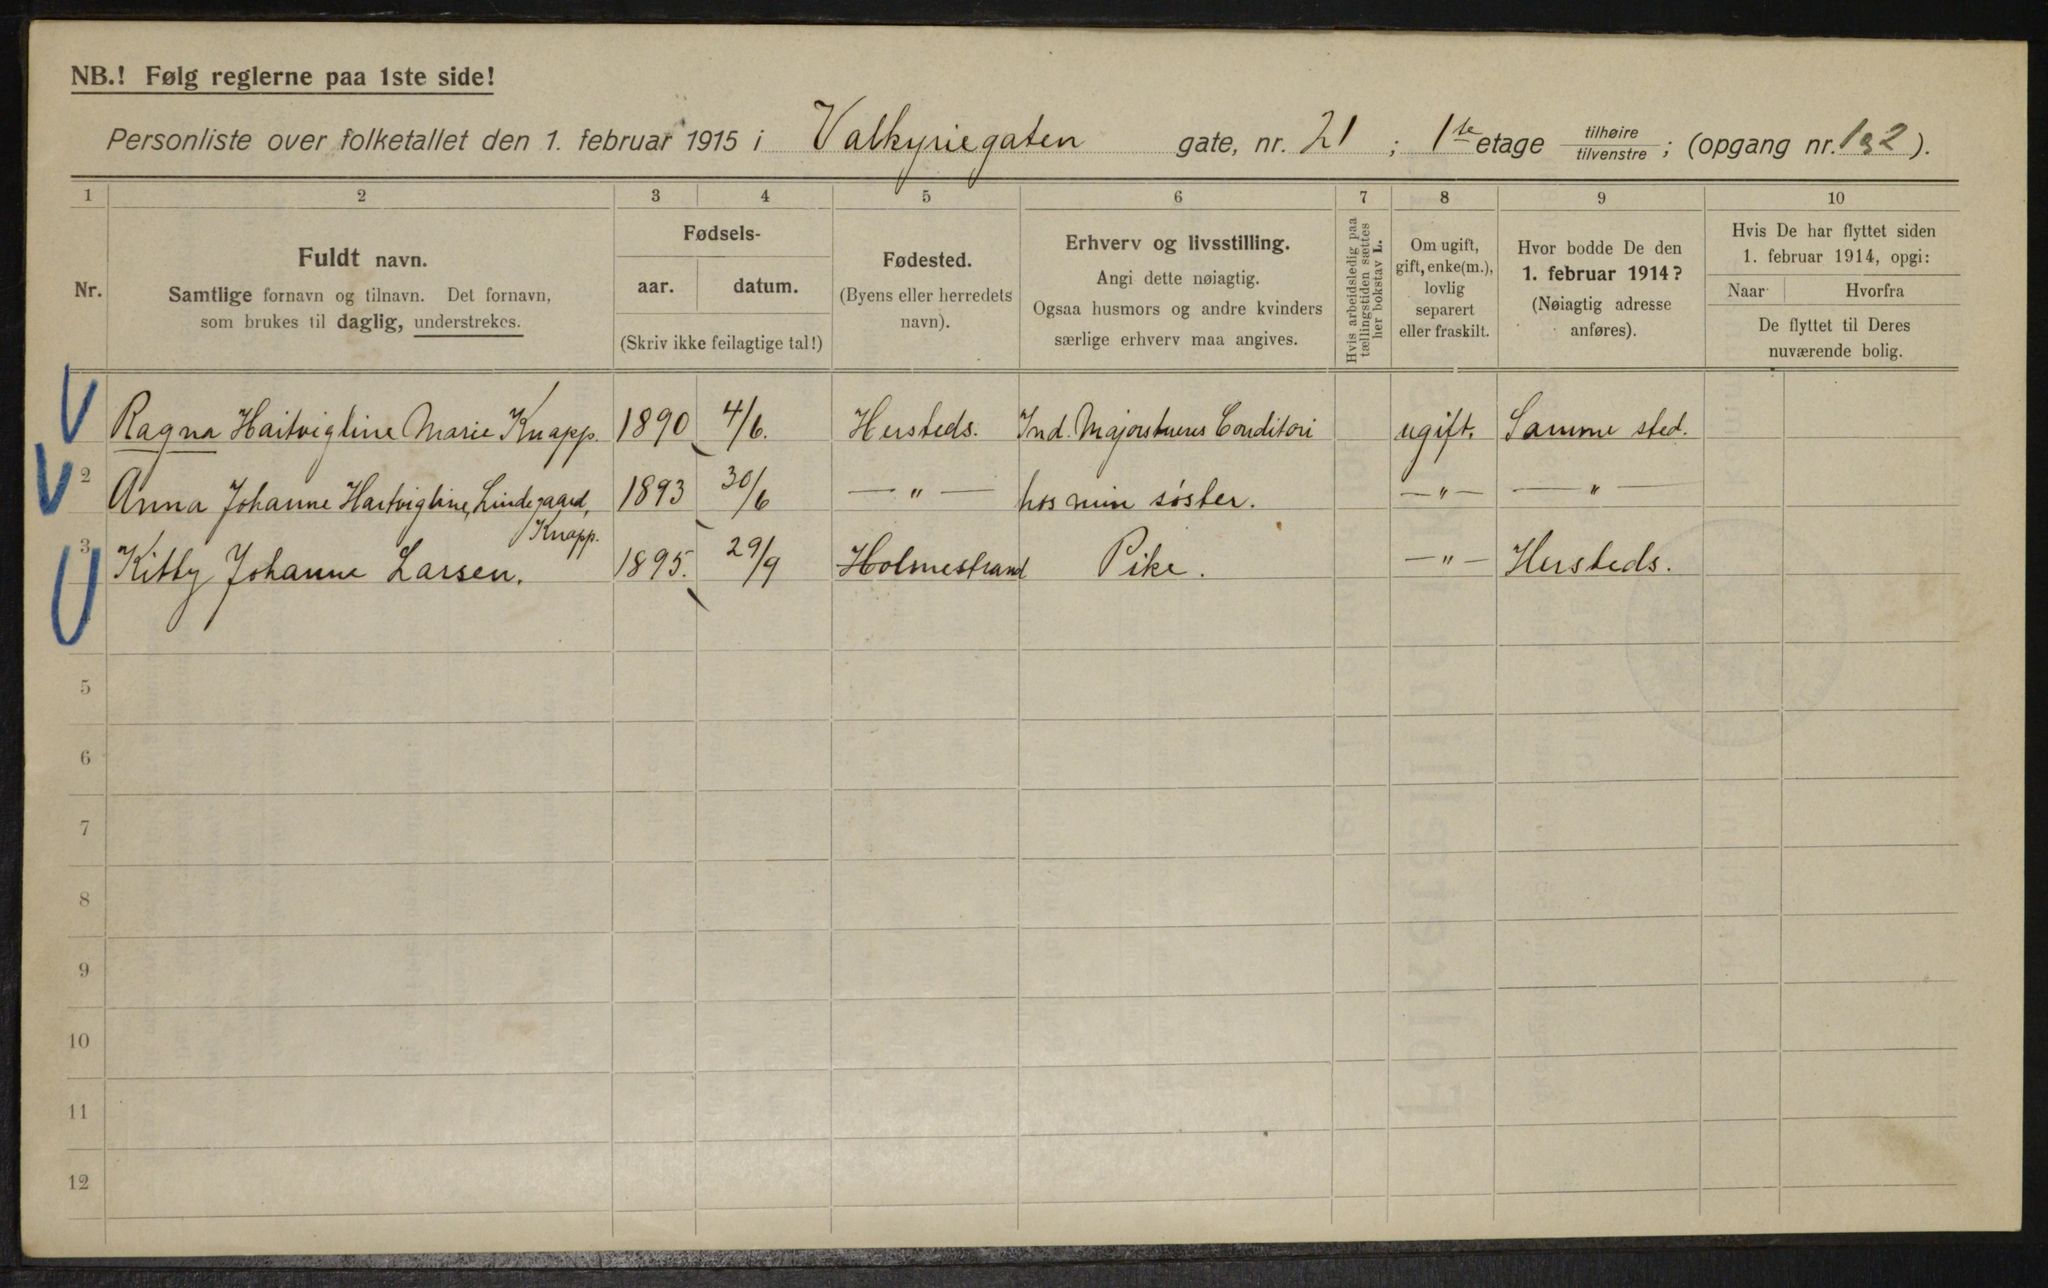 NB.! Følg reglerne paa 1ste side!
Personliste over folketallet den 1. februar 1915 i Valkyriegaten gate, nr. 21 ; 1ste etage tilhøire / tilvenstre ; (opgang nr. 1 2 ).
1 2 3 4 5 6 7 8 9 10
Nr.
Fuldt navn.
Samtlige fornavn og tilnavn. Det fornavn,
som brukes til daglig, understrekes.
Fødsels-
aar. datum.
(Skriv ikke feilagtige tal!)
Fødested.
(Byens eller herredets
navn).
Erhverv og livsstilling.
Angi dette nøiagtig.
Ogsaa husmors og andre kvinders
særlige erhverv maa angives.
Hvis arbeidsledig paa
tællingstiden sættes
her bokstav L.
Om ugift,
gift, enke(m.),
lovlig
separert
eller fraskilt.
Hvor bodde De den
1. februar 1914?
(Nøiagtig adresse
anføres).
Hvis De har flyttet siden
1. februar 1914, opgi:
Naar Hvorfra
De flyttet til Deres
nuværende bolig.
Ragna Hartvigline Marie Knapp. 1890 4/6. Hersteds. Ind. Majorstuens Conditori ugift. Samme sted.
2 Anna Johanne Hartvigline, Lindegaard, 1893 30/6 — " — hos min söster. — " — — " —
Knapp.
3 Kitty Johanne Larsen. 1895. 29/9 Holmestrand Pike. — " — Hersteds.
5
6
7
8
9
10
11
12